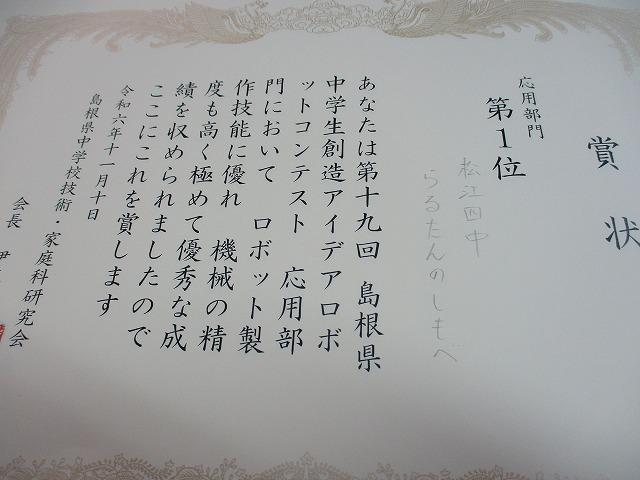 賞状
応用部門
第１位
松江四中
らるたんのしもべ
あなたは第十九回 島根県
中学生創造アイデアロボ
ットコンテスト 応用部
門において ロボット製
作技能に優れ 機械の精
度も高く極めて優秀な成
績を収められましたので
ここにこれを賞します
令和六年十一月十日
島根県中学校技術・家庭科研究会
会長